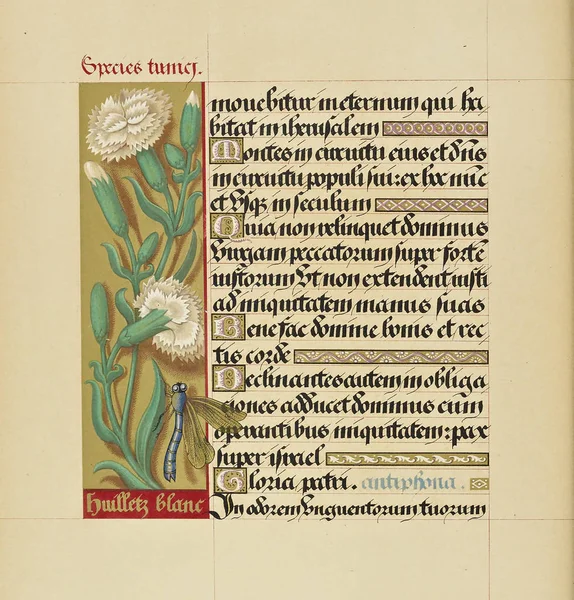 Species tunicj.
mouebitur in eternum qui ha
bitat in iherusalem
Montes in circuitu eius et dn̄s
in circuitu populi sui: ex hoc nūc
et vsq; in seculum
Quia non relinquet dominus
virgam peccatorum super sortē
iustorum vt non extendent iusti
ad iniquitatem manus suas
Benefac domine bonis et rec
tis corde
Declinantes autem in obliga
ciones adducet dominus cum
operantibus iniquitatem: pax
super israel
Gloria patri. antiphona.
In odorem vnguentorum tuorum
huilletz blanc